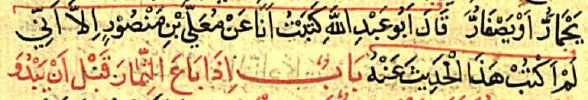 يَحْمَارُّ اَوْ يَصْفَارُّ قَالَ اَبُو عَبْدِ اللّٰهِ كَتَبْتُ اَنَا عَنْ مُعَلَّى بْنِ مَنْصُوْرٍ اِلَّا اَنِّي
لَمْ اَكْتُبْ هٰذَا الْحَدِيْثَ عَنْهُ بَابٌ اِذَا بَاعَ الثِّمَارَ قَبْلَ اَنْ يَبْدُوَ